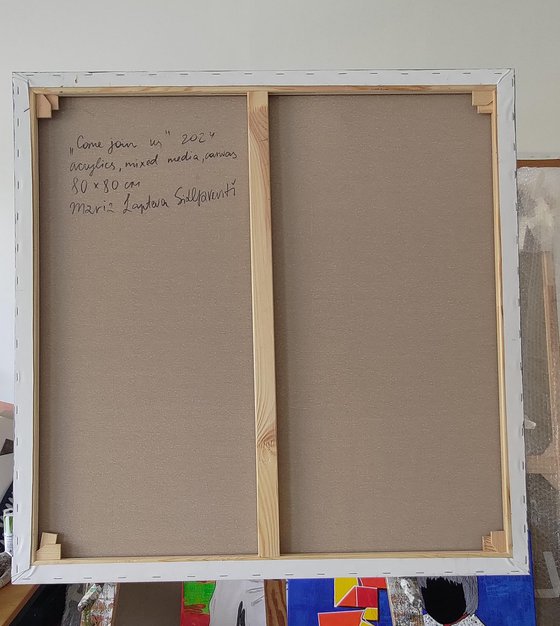 „Come join us" 2024
acrylics, mixed media, canvas
80 x 80 cm
Maria Lapteva